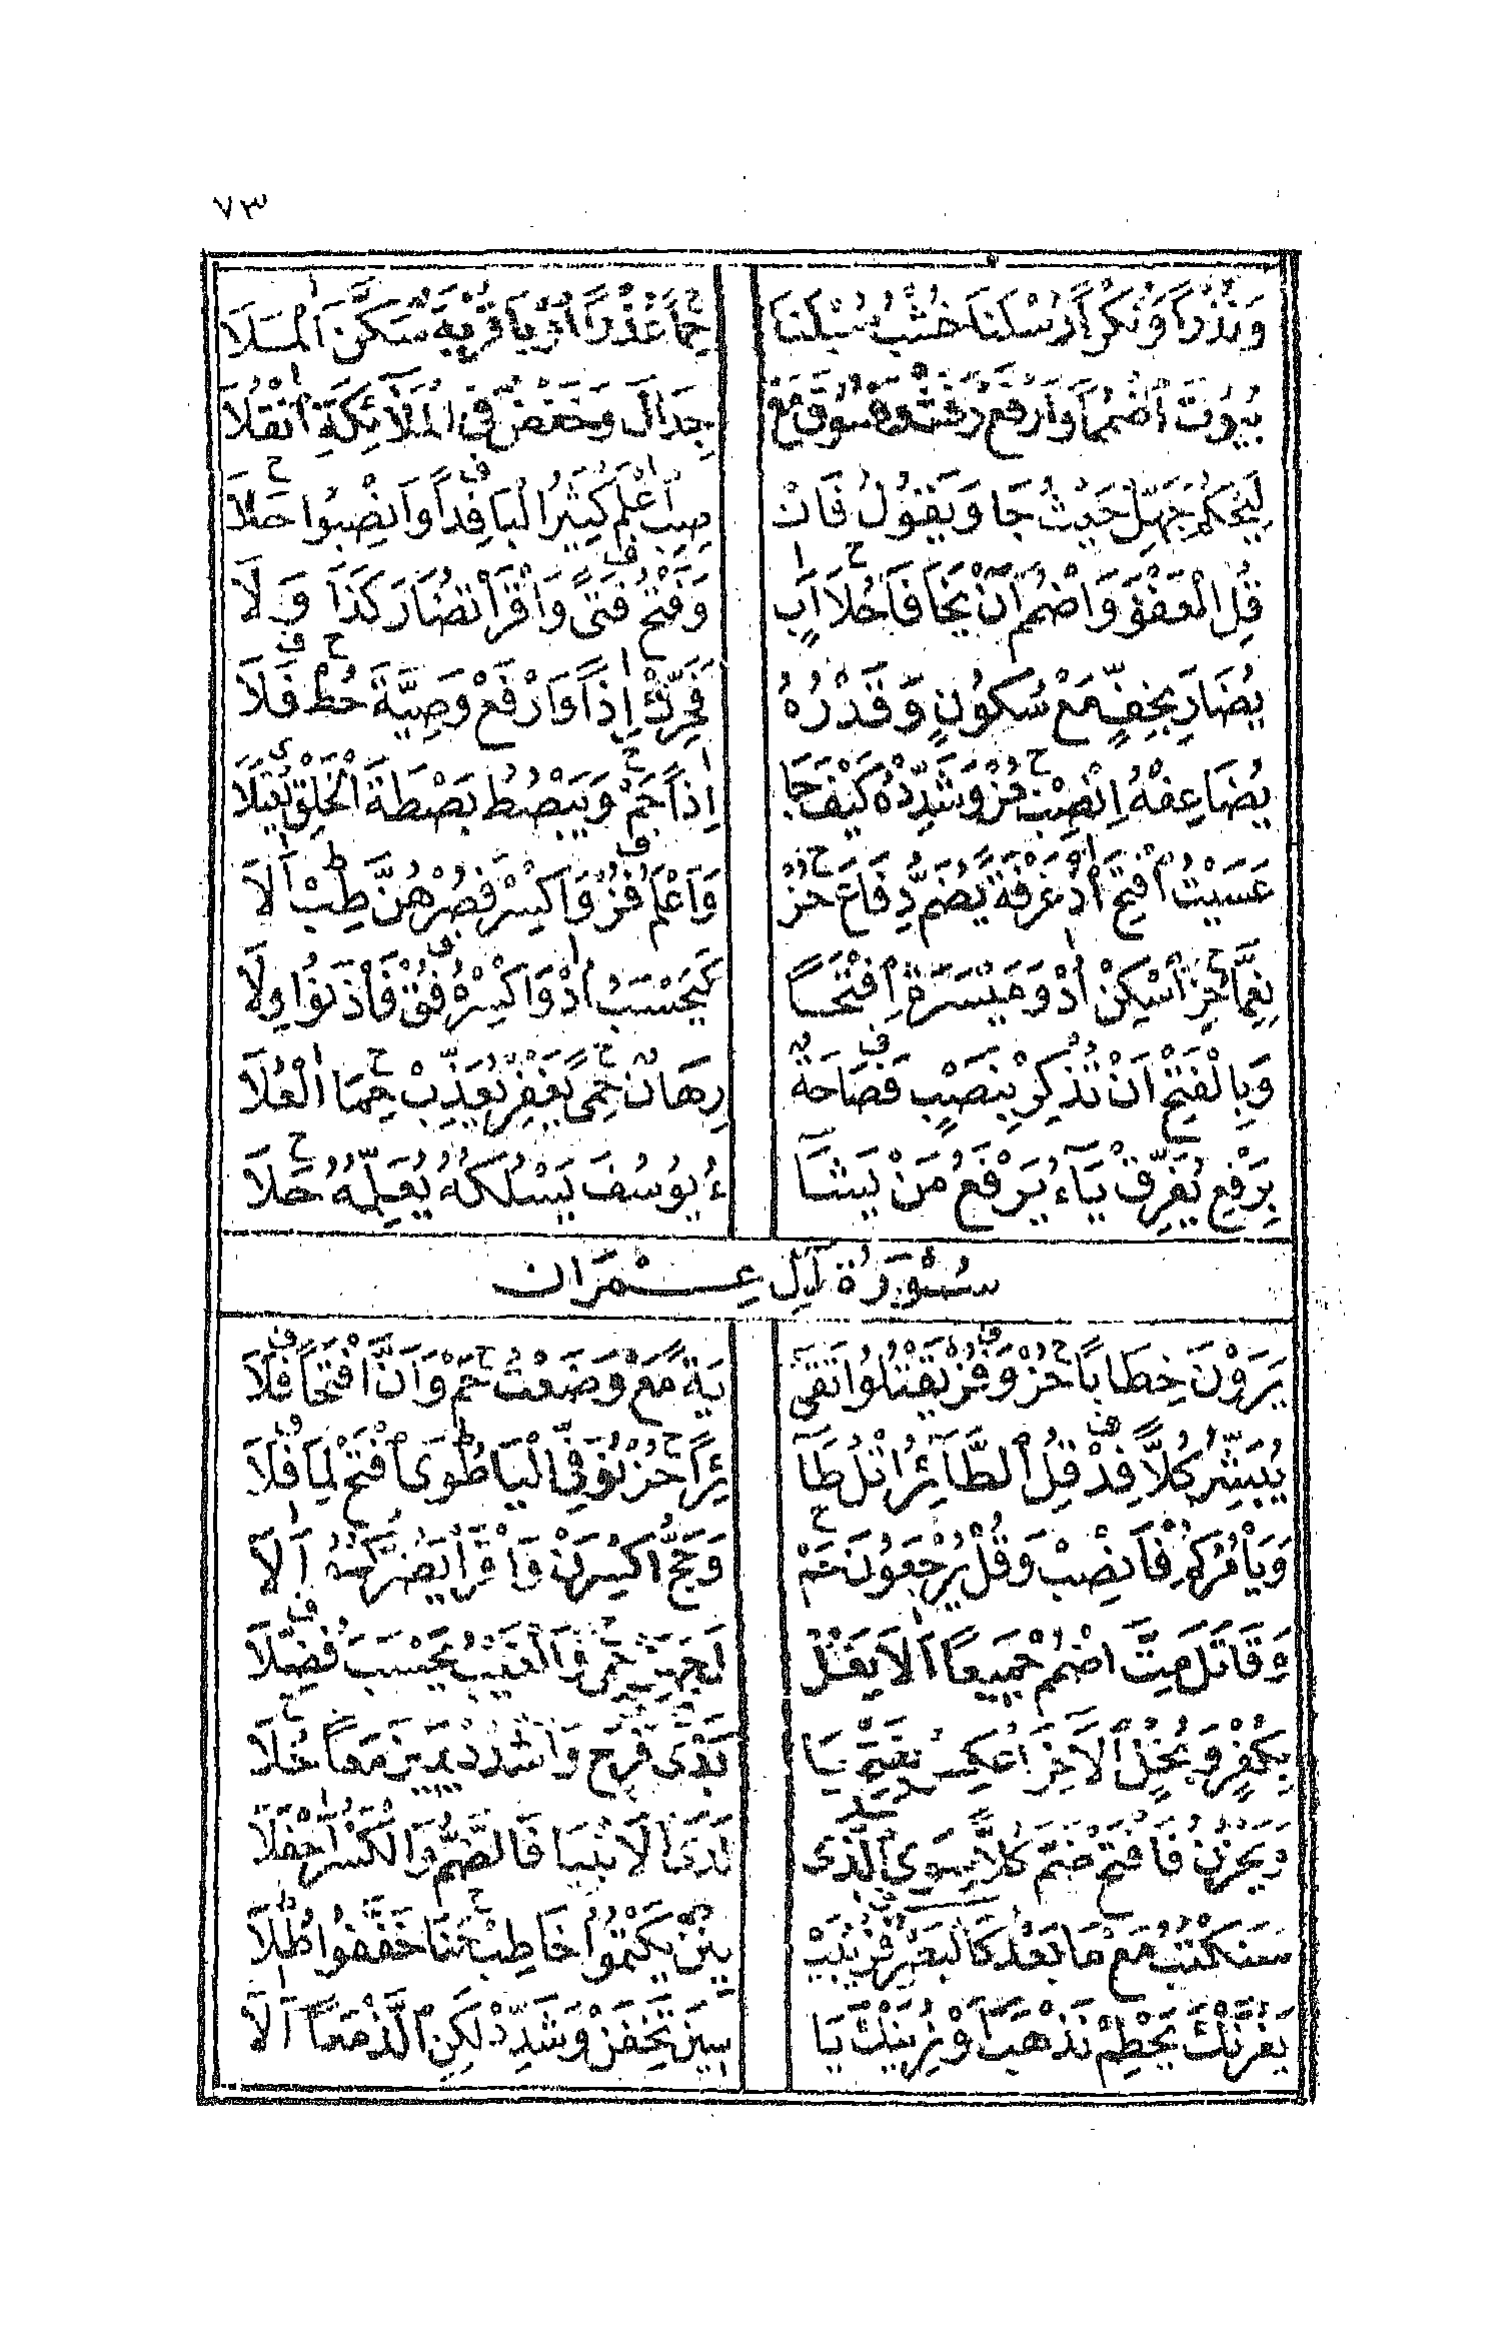 ٧٣
وَنُذْرًا وَنُكْرًا رُسْلُنَا خُشْبُ سُبْلَنَا حِمًا عُذْرًا اَوْ يَا قُرْبَةٌ سَكَّنَ الْمَلَا
بُيُوتَ اضْمُمًا وَارْفَعْ رَفَثْ وَفُسُوقَ مَعْ جِدَالَ وَخَفْضٌ فِى الْمَلَائِكَةِ اثْقُلَا
لِيَحْكُمَ جَهِّلْ حَيْثُ جَا وَيَقُولُ فَانْ صِبِ اعْلَمْ كَثِيرُ الْبَا فِدًا وَانْصِبُوا حَلَا
قُلِ الْعَفْوَ وَاضْمُمْ اَنْ يَخَافَا حُلَا اَبٍ وَفَتْحُ فَتًى وَاقْرَأْ تُضَارَ كَذَا وَلَا
يُضَارَ بِخِفٍّ مَعْ سُكُونٍ وَقَدْرُهُ فَحَرِّكْ اِذًا وَارْفَعْ وَصِيَّةَ حُطْ فَلَا
يُضَاعِفْهُ اِنْصِبْ حُزْ وَشَدِّدْهُ كَيْفَ جَا اِذًا حُمْ وَيَبْصُطْ بَصْطَةَ الْخَلْقِ يُعْتَلَا
عَسَيْتُ افْتَحْ اذْ غَرْفَةً يُضَمُّ دِفَاعُ حُزْ وَاَعْلَمُ فُزْ وَاكْسِرْ فَصُرْهُنَّ طِبْ اَلَا
نِعِمَّا حُزْ اَسْكِنْ اُدْ وَمَيْسَرَةِ افْتَحًا كَيَحْسَبُ اُدْ وَاكْسِرْهُ فُقْ فَأْذَنُوا وِلَا
وَبِالْفَتْحِ اَنْ تُذْكِرْ بِنَصْبٍ فَصَاحَةٌ رِهَانٌ حِمًى يَغْفِرْ يُعَذِّبْ حِمَا الْعُلَا
بِرَفْعٍ يُفَرِّقْ يَاءُ يَرْفَعُ مَنْ يَشَا ءُ يُوسُفَ يَسْلُكْهُ يُعَلِّمُهُ حَلَا
سُورَةُ آلِ عِمْرَان
يَرَوْنَ خِطَابًا حُزْ وَفُزْ يَقْتُلُوا تَقِيَّ يَةً مَعْ وَضَعْتُ حُمْ وَاَنَّ افْتَحًا فُلَا
يُبَشِّرُ كُلًّا فِدْ قُلِ الطَّائِرُ اتْلُ طَا ئِرًا حُزْ نُوَفِّى الْيَا طُوًى افْتَحْ لِمَا فُلَا
وَيَأْمُرُكُمْ فَانْصِبْ وَقُلْ يُرْجَعُونَ حُمْ وَحِجُّ اكْسِرَنْ وَاقْرَأْ يَضُرُّكُمُ اَلَا
وَقَاتَلَ مِتَّ اضْمُمْ جَمِيعًا اَلَا يَغُلَّ لَ جَهِّلْ حِمًى وَالْغَيْبُ يَحْسَبُ فُضِّلَا
بِكُفْرٍ وَبُخْلِ الْآخِرَ اعْكِسْ بِفَتْحِ يَا بَذِى فَرَحٍ وَاشْدُدْ يَمِيزَ مَعًا حُلَا
وَيَحْزُنُ فَافْتَحْ ضُمَّ كُلًّا سِوَى الَّذِى لَدَى الْاَنْبِيَا فَالضَّمُّ وَالْكَسْرُ اَحْفَلَا
سَنَكْتُبُ مَعْ مَا بَعْدُ كَالْبَصْرِ فُزْ يُبَيْ يِنُنْ يَكْتُمُوا خَاطِبْ حَنَا خَفَّفُوا طُلَا
يَغُرَّنْكَ يَحْطِمْ نَذْهَبًا اَوْ نُرِيَنْكَ يَا سِتَخِفَّنْ وَشَدِّدْ لَكِنِ الَّذْ مَعًا اَلَا